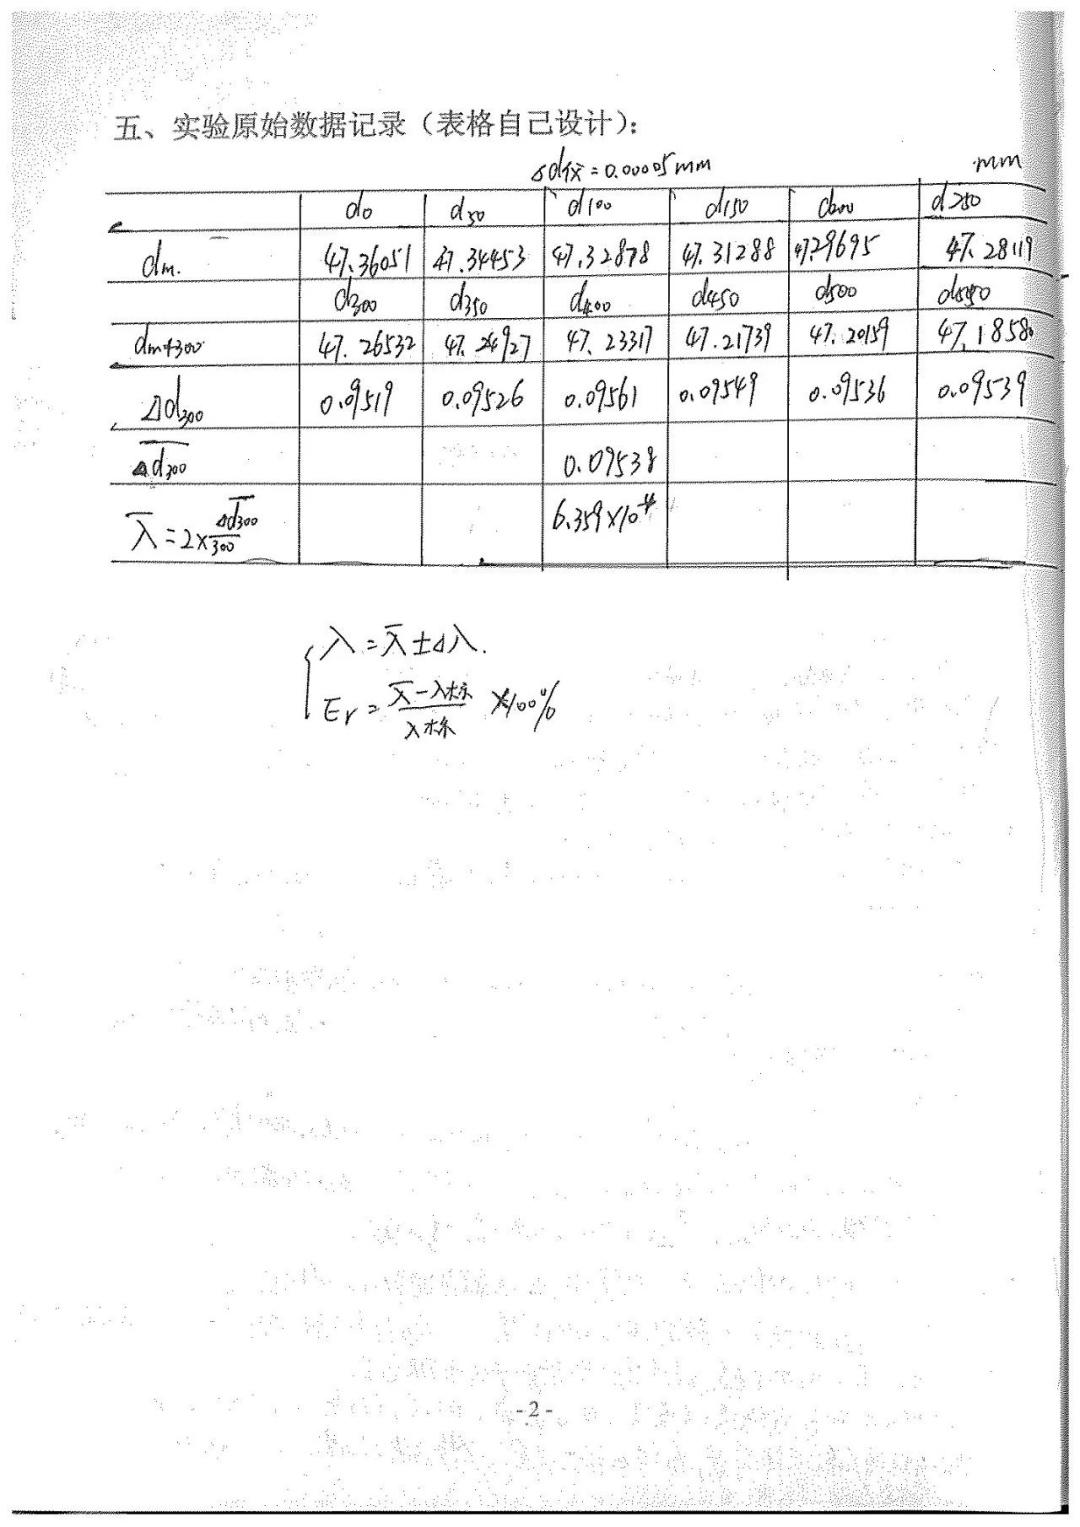 五、实验原始数据记录（表格自己设计）：
Δd仪=0.00005mm mm
d0 d50 d100 d150 d200 d250
dm. 47.36051 47.34453 47.32878 47.31288 47.29695 47.28119
d300 d350 d400 d450 d500 d550
dm+300 47.26532 47.24927 47.23317 47.21739 47.20159 47.18580
Δd300 0.09519 0.09526 0.09561 0.09549 0.09536 0.09539
Δd300 0.09538
λ=2×Δd300/300 6.359×10-4
λ=λ±Δλ.
Er=λ-λ标/λ标 ×100%
-2-